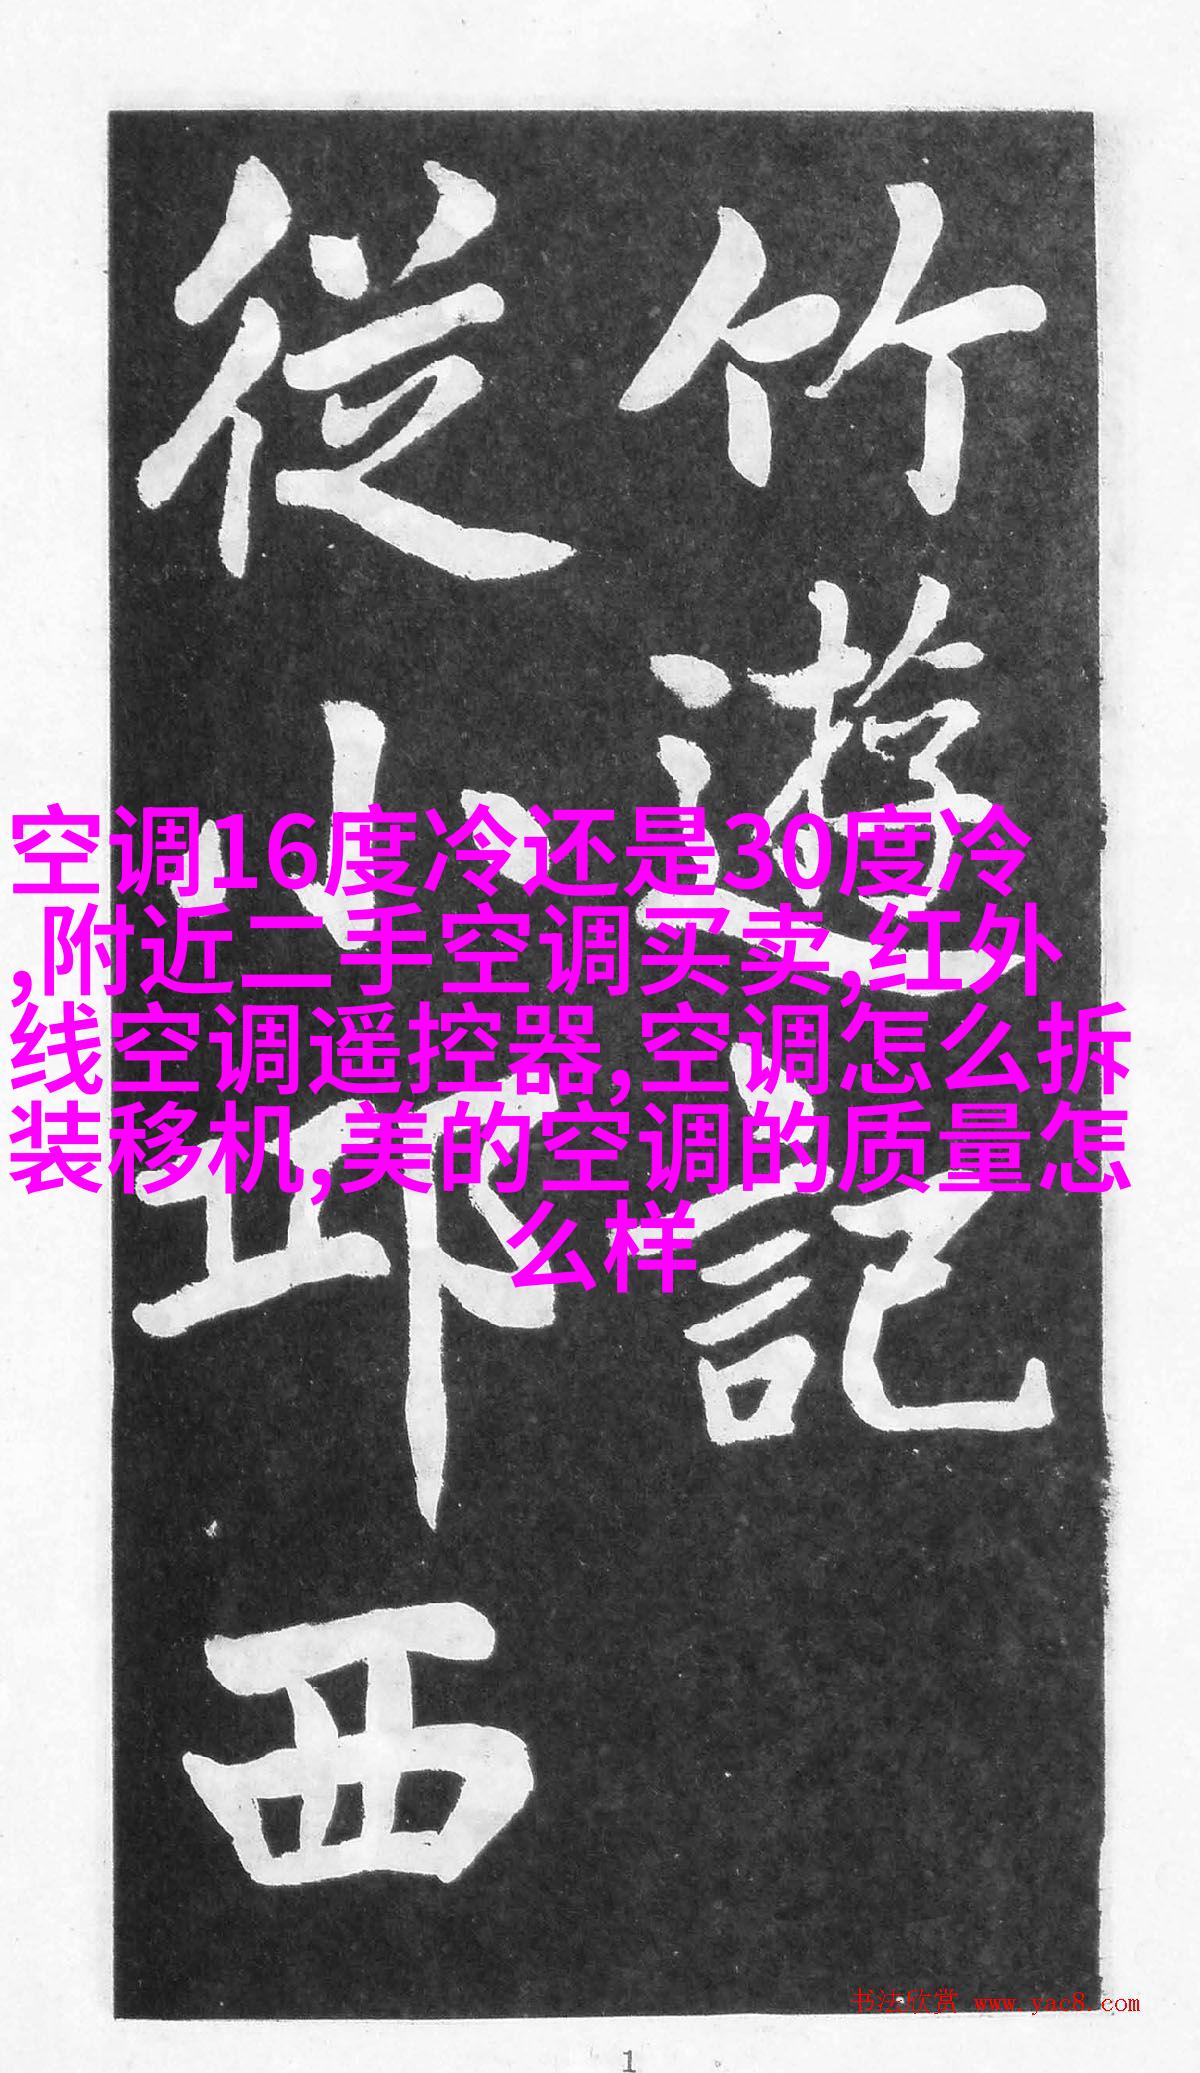 竹遊記
從小邱西
空调16度冷还是30度冷
,附近二手空调买卖,红外
线空调遥控器,空调怎么拆
装移机,美的空调的质量怎
么样
书法欣赏 www.yac8.com
1